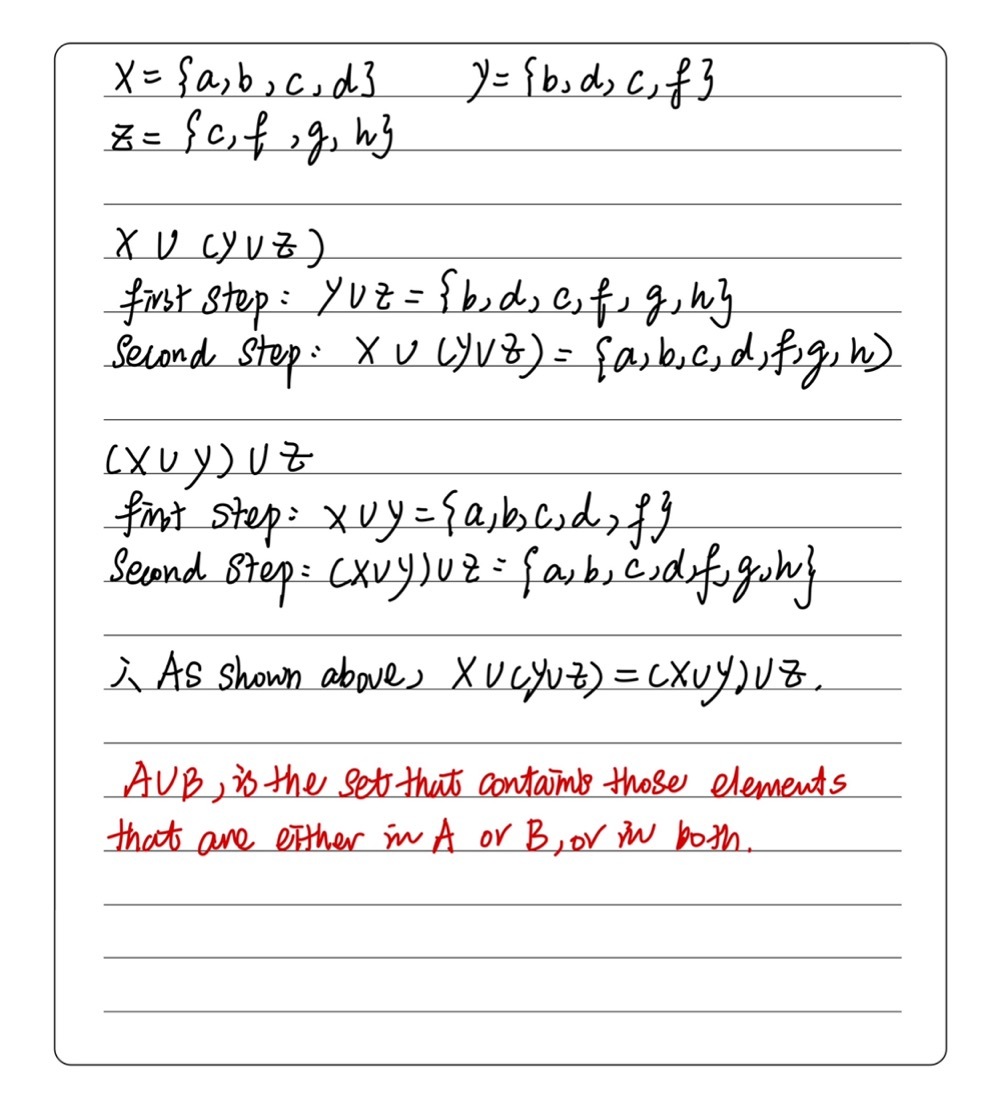 X = {a, b, c, d} y = {b, d, c, f}
z = {c, f, g, h}
X ∪ (y ∪ z)
first step: y ∪ z = {b, d, c, f, g, h}
Second Step: X ∪ (y ∪ z) = {a, b, c, d, f, g, h)
(X ∪ y) ∪ z
first step: X ∪ y = {a, b, c, d, f}
Second Step: (X ∪ y) ∪ z = {a, b, c, d, f, g, h}
∴ As shown above, X ∪ (y ∪ z) = (X ∪ y) ∪ z.
A ∪ B, is the set that contains those elements
that are either in A or B, or in both.